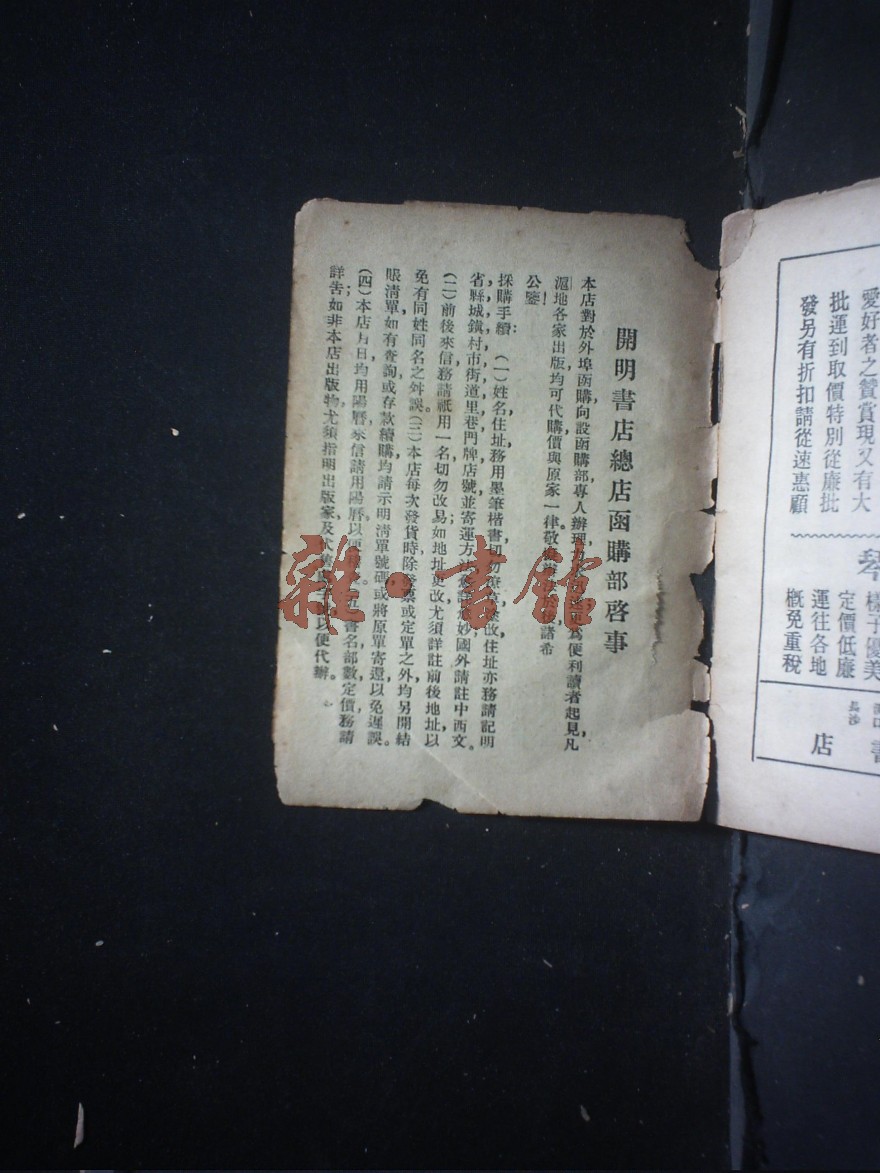 開明書店總店函購部啓事
本店對於外埠函購向設函購部專人辦理為便利讀者起見凡
滬地各家出版均可代購價與原家一律敬諸希
公鑒！
採購手續：（一）姓名住址務用墨筆楷書切勿改住址亦務請記明
省縣城鎮村市街道里巷門牌店號並寄運方法妙國外請註中西文。
（二）前後來信務請祇用一名切勿改易如地址更改尤須詳註前後地址以
免有同姓同名之舛誤。（三）本店每次發貨時除發票或定單之外均另開結
賬清單如有查詢或存款續購均請示明清單號碼或將原單寄還以免遲誤。
（四）本店月日均用陽曆來信請用陽曆以便書名部數定價務請
詳告如非本店出版物尤須指明出版家及以便代辦。
愛好者之贊賞現又有大
批運到取價特別從廉批
發另有折扣請從速惠顧
琴
樣子優美
定價低廉
運往各地
概免重稅
長沙
書
店
雜·書館